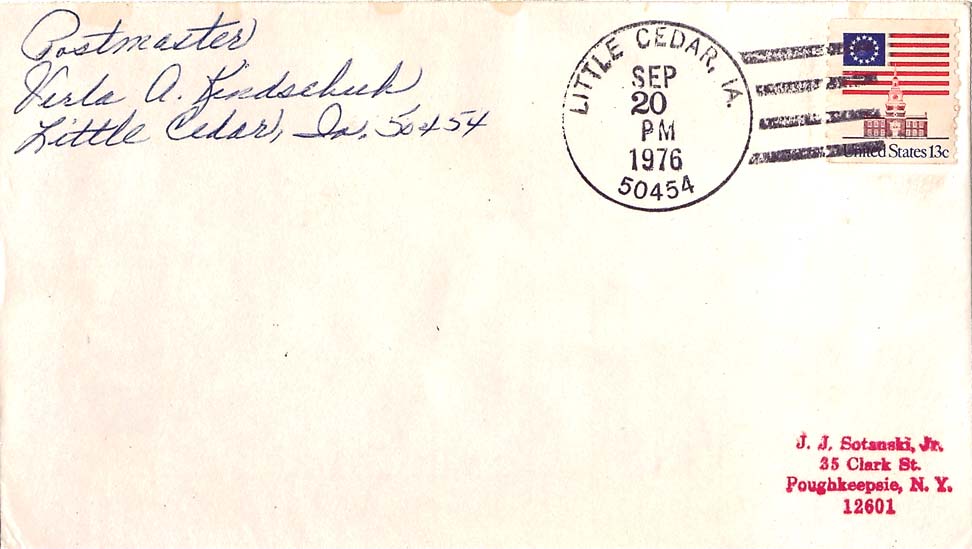 Postmaster
Verla A. Kindschuh
Little Cedar, Ia. 50454
LITTLE CEDAR, IA.
SEP
20
PM
1976
50454
United States 13c
J. J. Sotanski, Jr.
35 Clark St.
Poughkeepsie, N. Y.
12601